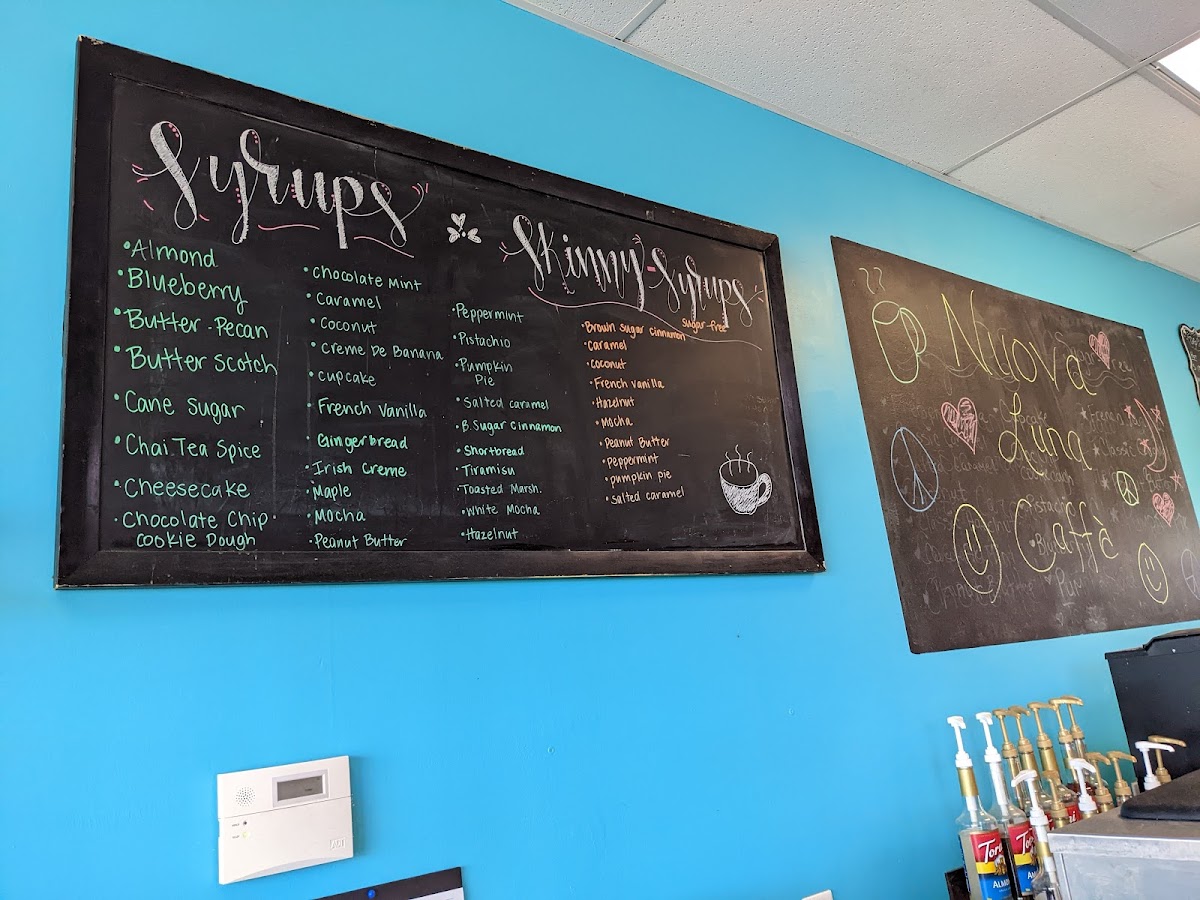 Syrups
• Almond
• Blueberry
• Butter - Pecan
• Butter Scotch
• Cane Sugar
• Chai Tea Spice
• Cheesecake
• Chocolate Chip
Cookie Dough
• Chocolate Mint
• Caramel
• Coconut
• Creme De Banana
• Cupcake
• French Vanilla
• Gingerbread
• Irish Creme
• Maple
• Mocha
• Peanut Butter
• Peppermint
• Pistachio
• Pumpkin
Pie
• Salted caramel
• B. Sugar Cinnamon
• Shortbread
• Tiramisu
• Toasted Marsh.
• White Mocha
• Hazelnut
Skinny-Syrups
sugar-free
• Brown sugar cinnamon
• Caramel
• Coconut
• French Vanilla
• Hazelnut
• Mocha
• Peanut Butter
• Peppermint
• pumpkin pie
• Salted caramel
Nuova
Luna
Caffè
ADT